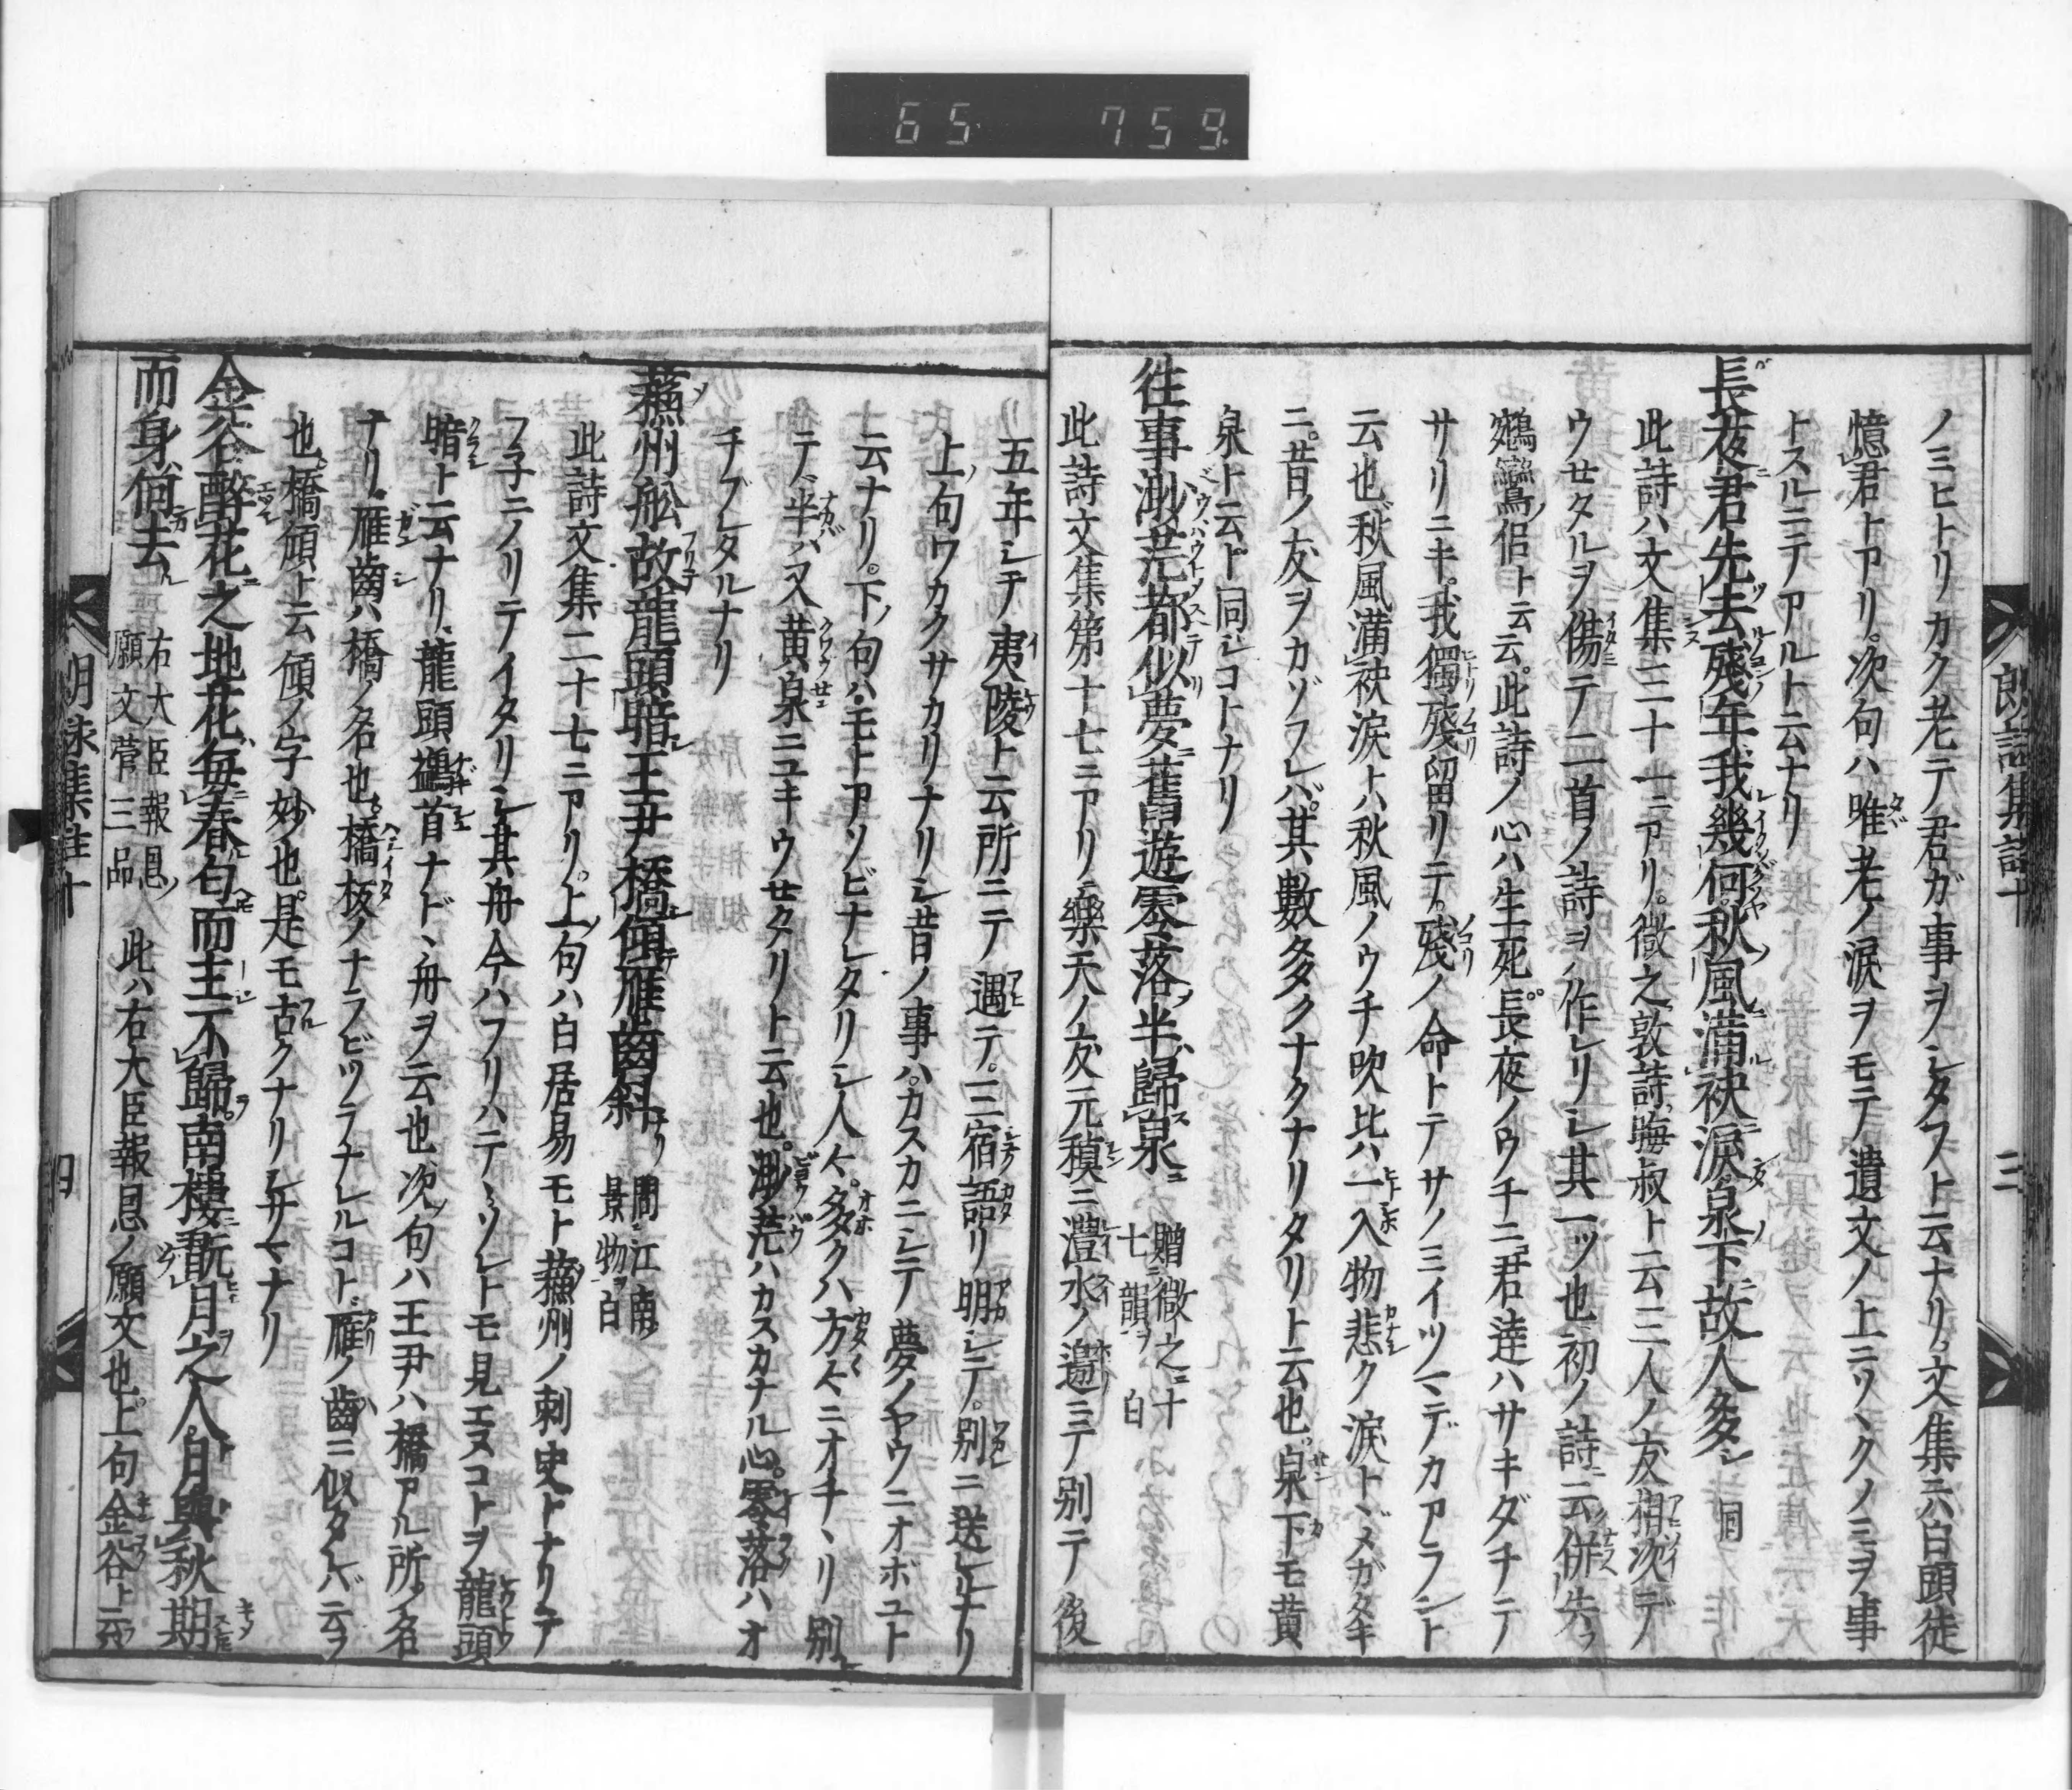 65 759
朗詠集註十 三
ノミヒトリカク老テ君ガ事ヲシタフト云ナリ。文集六白頭徒
憶君トアリ。次句ハ唯老ノ涙ヲモテ遺文ノ上ニソヽクノミヲ事
トスルニテアルト云ナリ
長夜君先去殘年我幾何秋風滿袂涙泉下故人多 同
此詩ハ文集三十一ニアリ。微之敦詩晦叔ト云三人ノ友相次デ
ウセタルヲ傷テ二首ノ詩ヲ作レリシ其一ツ也初ノ詩ニ云併失
鵷鸞侶ト云云。此詩ノ心ハ生死長夜ノウチニ君達ハサキダチテ
サリニキ。我獨殘留リテ。殘ノ命トテサノミイツマデカアラント
云也秋風滿袂涙トハ秋風ノウチ吹比ハ一入物悲ク涙トヾメガタキ
ニ。昔ノ友ヲカゾフレバ。其數多クナクナリタリト云也。泉下モ黄
泉ト云ト同シコトナリ
往事渺茫都似夢舊遊零落半歸泉 贈微之十
七韻 白
此詩文集第十七ニアリ樂天ノ友元稹ニ灃水ノ邊ニテ別テ後
五年シテ夷陵ト云所ニテ遇テ。三宿語リ明シテ。別ニ送レルナリ
上句ワカクサカリナリシ昔ノ事ハ。カスカニシテ夢ノヤウニオボユト
云ナリ。下句ハモトアソビナレタリシ人々。多クハ方々ニオチヽリ別
テ半ハ又黄泉ニユキウセタリト云也。渺茫ハカスカナル心。零落ハオ
チブレタルナリ
蘇州舩故龍頭暗王尹橋傾雁齒斜 問江南
景物 白
此詩文集二十七ニアリ。上句ハ白居易モト蘇州ノ刺史トナリテ
フ子ニノリテイタリシ其舟今ハフリハテヽソレトモ見エヌコトヲ龍頭
暗ト云ナリ龍頭鷁首ナドヽ舟ヲ云也次句ハ王尹ハ橋アル所ノ名
ナリ雁齒ハ橋ノ名也橋板ノナラビツラナレルコト雁ノ齒ニ似タレバ云フ
也橋傾ト云傾ノ字妙也是モ古クナリシサマナリ
金谷醉花之地花毎春匂而主不歸南樓翫月之人月與秋期
而身何去 右大臣報恩
願文菅三品 此ハ右大臣報恩ノ願文也上句金谷ト云
朗詠集註十 四